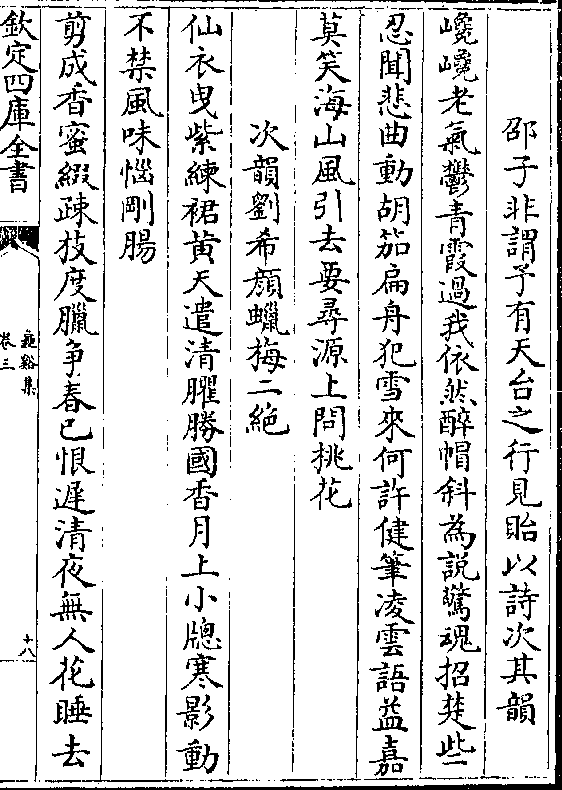 邵子非謂予有天台之行見貽以詩次其韻
巉巉老氣鬱青霞過我依然醉帽斜為説驚魂招楚些
忍聞悲曲動胡笳扁舟犯雪來何許健筆凌雲語益嘉
莫笑海山風引去要尋源上問桃花
次韻劉希顔蠟梅二絶
仙衣曳紫練裙黄天遣清臞勝國香月上小牕寒影動
不禁風味惱剛腸
剪成香蜜綴疎枝度臘争春已恨遲清夜無人花睡去
欽定四庫全書
龜谿集
卷三
十八